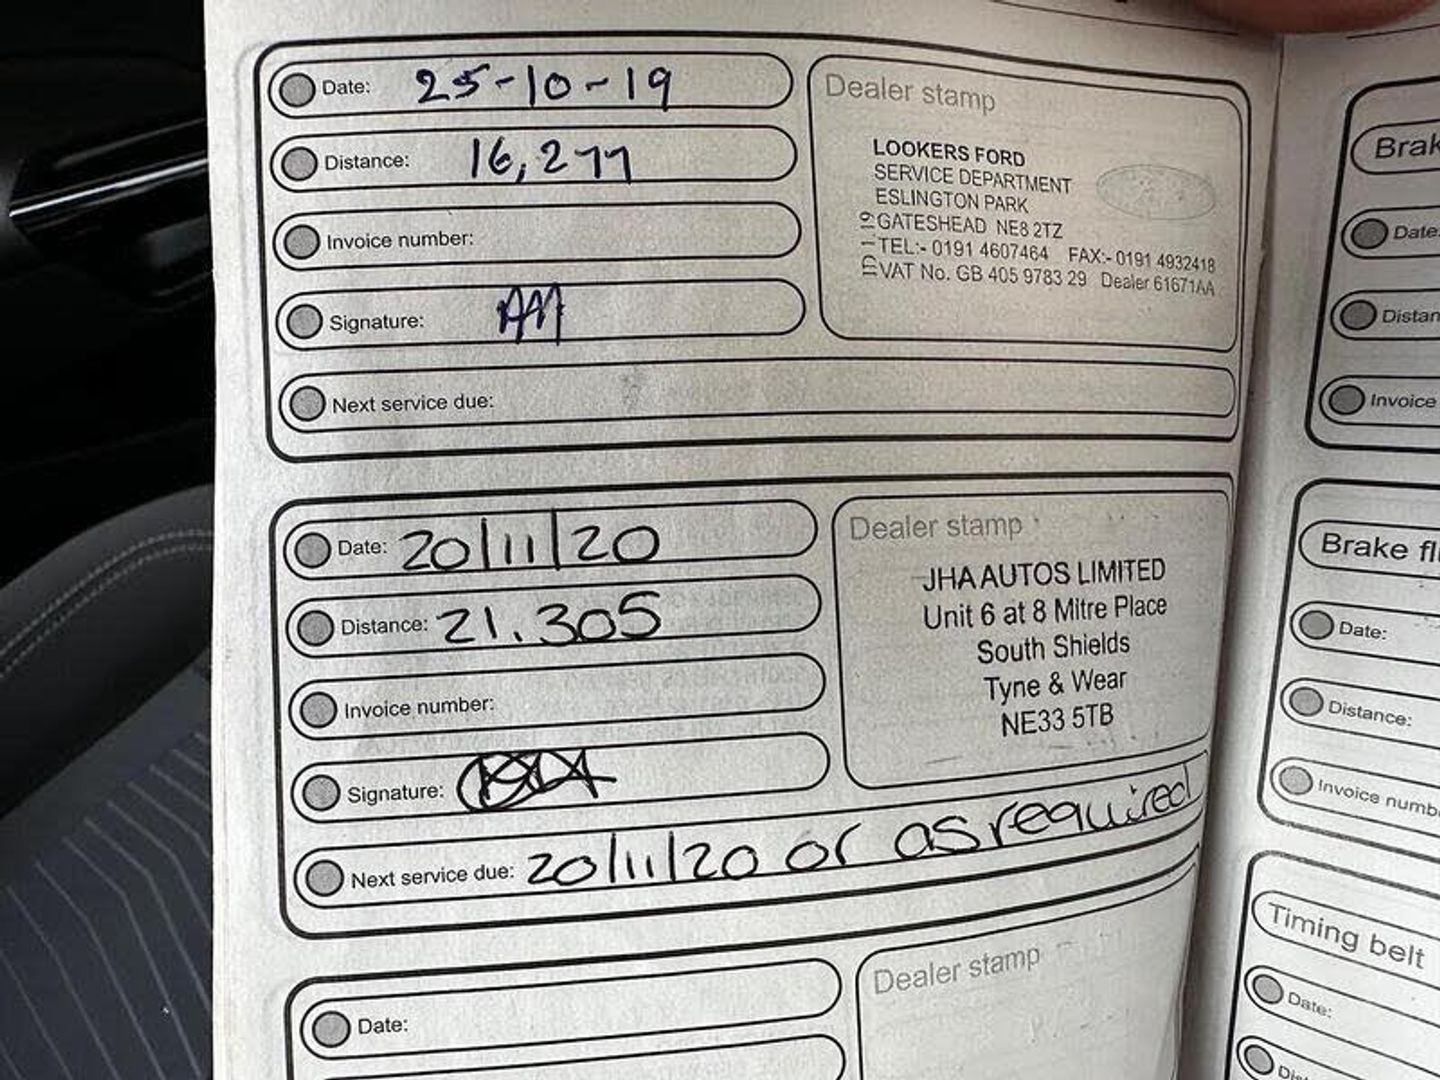 Date: 25-10-19
Distance: 16,277
Invoice number:
Signature:
Next service due:
Dealer stamp
LOOKERS FORD
SERVICE DEPARTMENT
ESLINGTON PARK
GATESHEAD NE8 2TZ
TEL:- 0191 4607464 FAX:- 0191 4932418
VAT No. GB 405 9783 29 Dealer 61671AA
Date: 20/11/20
Distance: 21.305
Invoice number:
Signature:
Next service due: 20/11/20 or as required
Dealer stamp
JHA AUTOS LIMITED
Unit 6 at 8 Mitre Place
South Shields
Tyne & Wear
NE33 5TB
Date:
Dealer stamp
Brak
Date:
Distan
Invoice
Brake fl
Date:
Distance:
Invoice numb
Timing belt
Date:
Dis